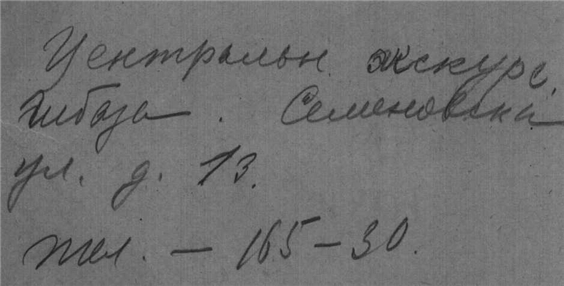 Центральн. экскурс.
база. Семеновская
ул. д. 13.
тел. – 165–30.